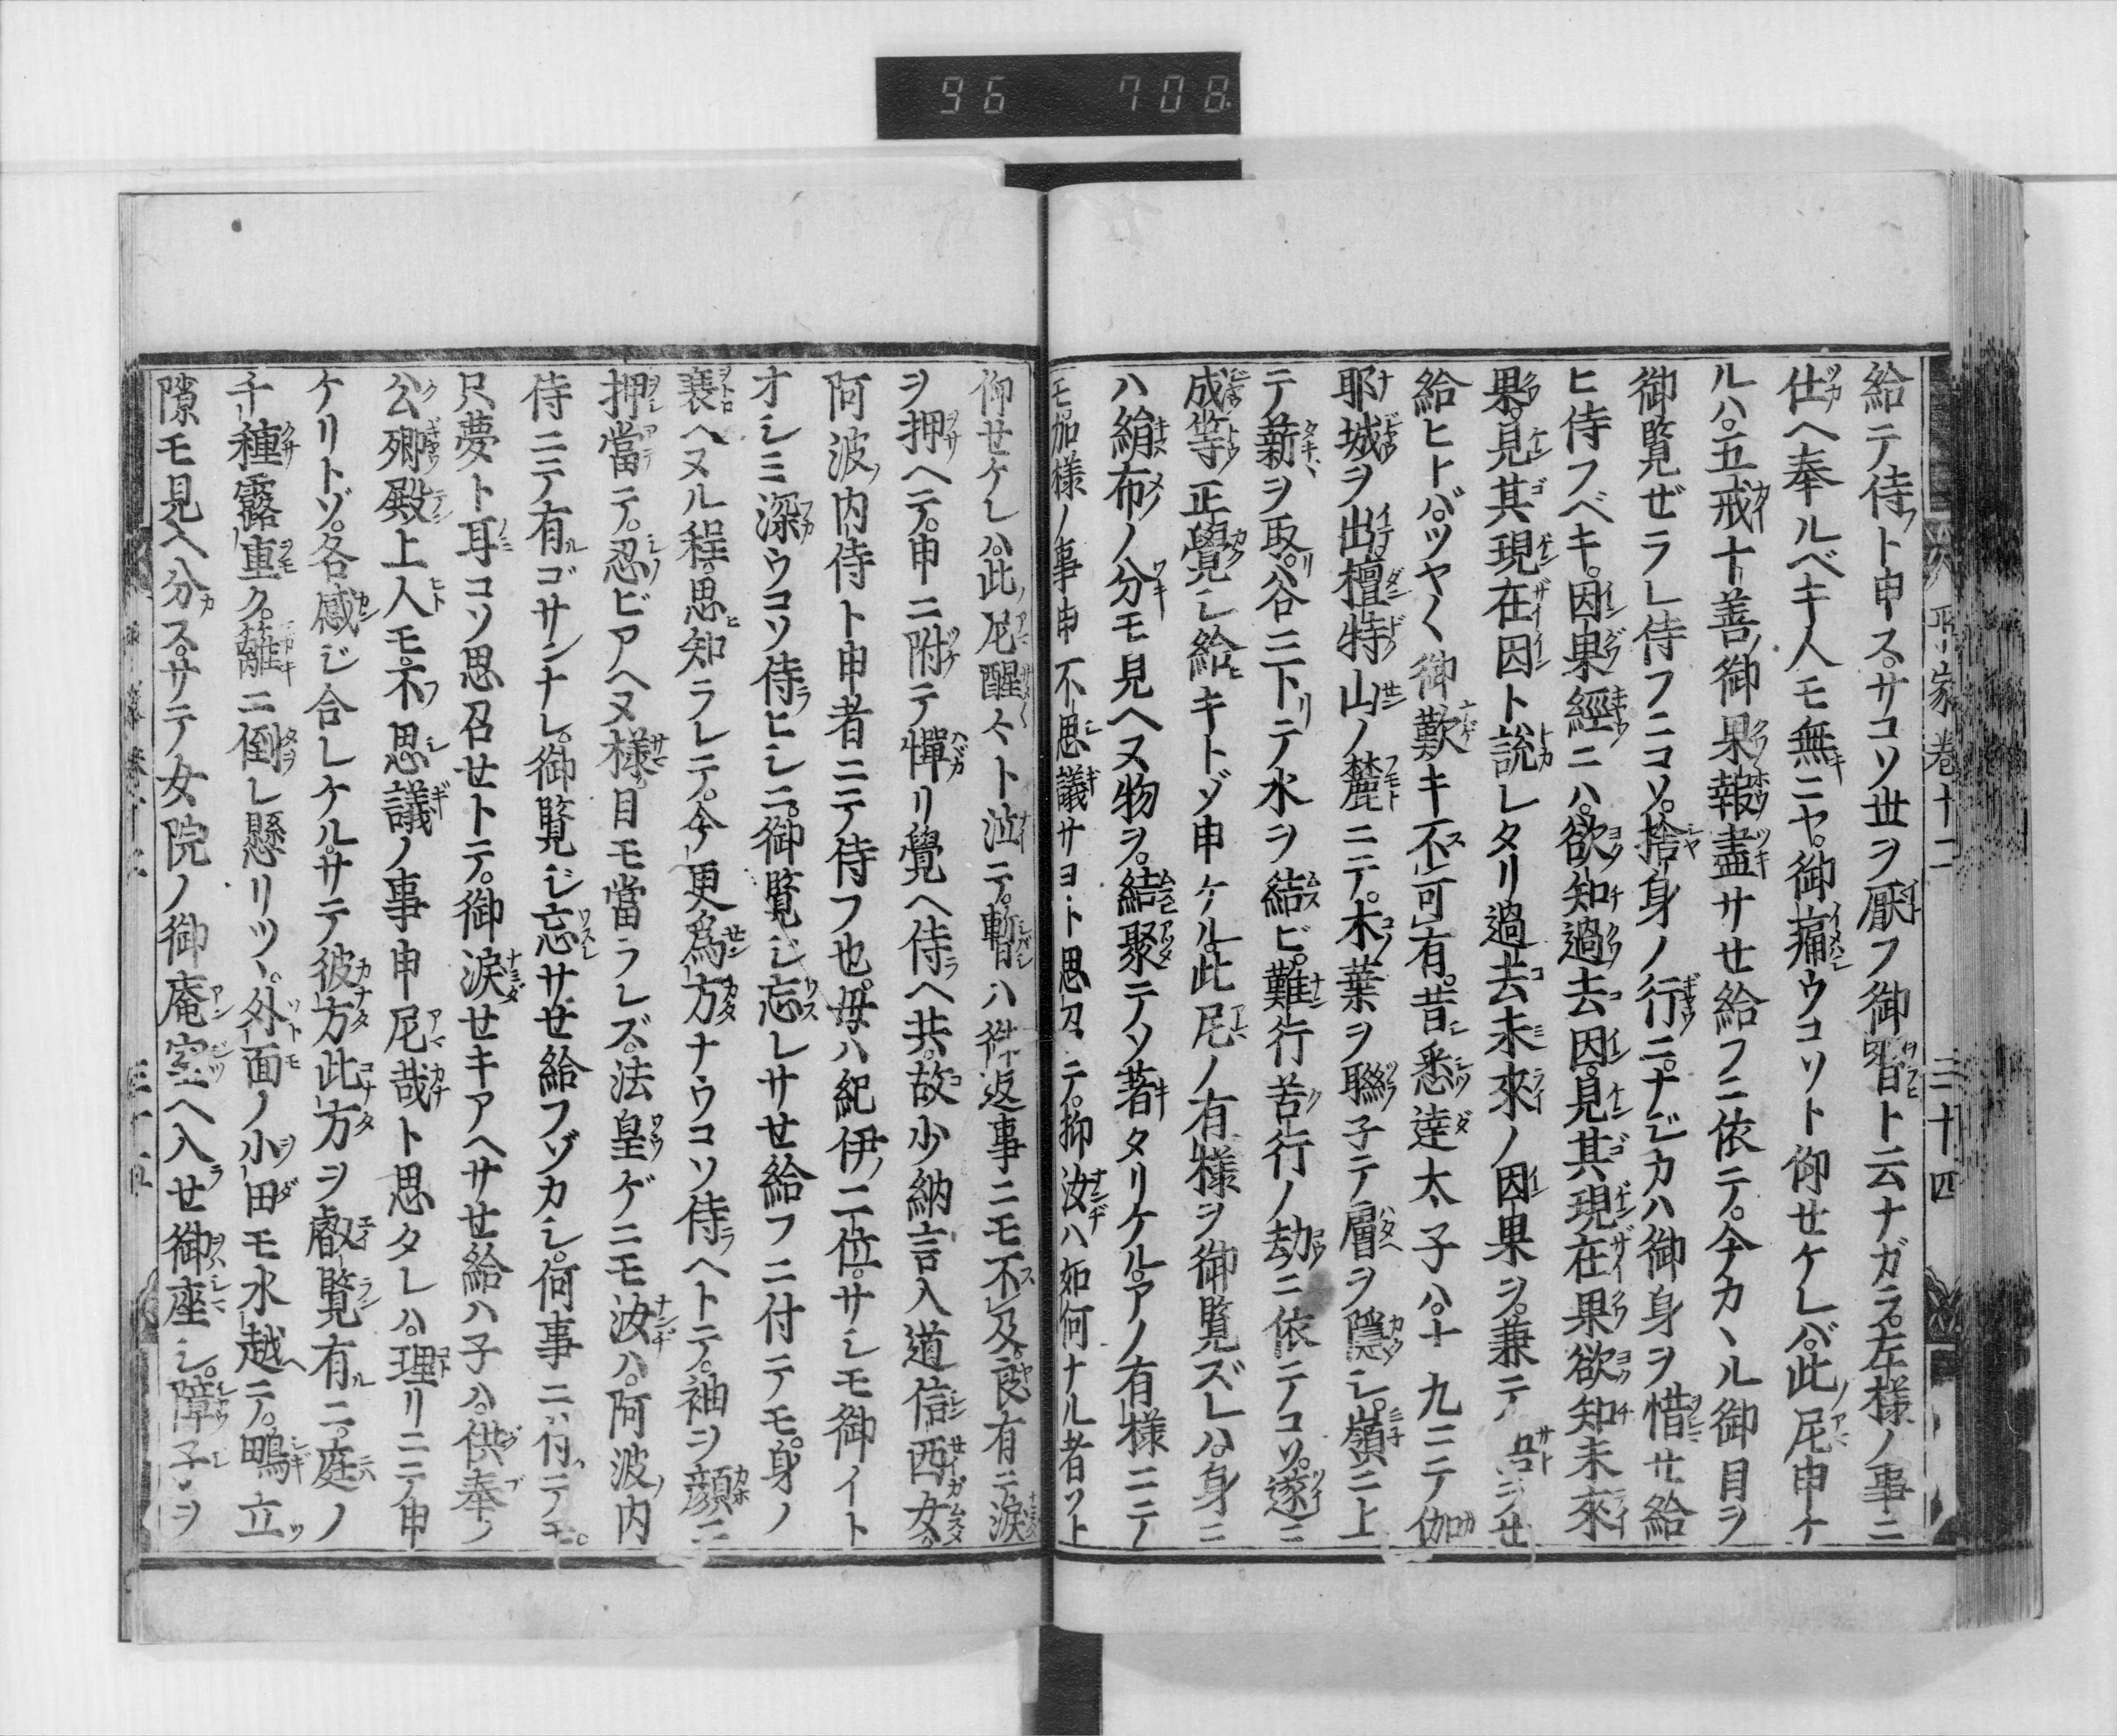 96 708
平家巻十二 三十四
給テ侍ト申ス。サコソ世ヲ厭フ御習ト云ナガラ。左様ノ事ニ
仕ヘ奉ルベキ人モ無ニヤ。御痛ウコソト仰セケレバ。此尼申ケ
ルハ。五戒十善ノ御果報盡サセ給フニ依テ。今カヽル御目ヲ
御覧ゼラレ侍フニコソ。捨身ノ行ニ。ナジカハ御身ヲ惜セ給
ヒ侍フベキ。因果經ニハ。欲知過去因。見其現在果。欲知未來
果。見其現在因ト説レタリ。過去未來ノ因果ヲ。兼テ悟ラセ
給ヒトバ。ツヤ〱御歎キ不可有。昔悉達太子ハ。十九ニテ伽
耶城ヲ出。檀特山ノ麓ニテ。木葉ヲ聯子テ層ヲ隱シ。嶺ニ上
テ薪ヲ取。谷ニ下テ水ヲ結ビ。難行苦行ノ劫ニ依テコソ。遂ニ
成等正覺シ給キトゾ申ケル。此尼ノ有様ヲ御覧ズレハ。身ニ
ハ絹布ノ分モ見ヘヌ物ヲ。結聚テソ著タリケル。アノ有様ニテ
モ。加様ノ事申不思議サヨト思召テ。抑汝ハ如何ナル者ソト
仰セケレハ。此尼醒々ト泣テ。暫ハ御返事ニモ不及。良有テ涙
ヲ押ヘテ。申ニ附テ憚リ覺ヘ侍ヘ共。故少納言入道信西女
阿波内侍ト申者ニテ侍フ也。母ハ紀伊二位。サレモ御イト
オレミ深ウコソ侍ヒシニ。御覧シ忘レサセ給フニ付テモ。身ノ
衰ヘヌル程思知ラレテ。今更爲方ナウコソ侍ヘトテ。袖ヲ顔ニ
押當テ。忍ビアヘヌ様。目モ當ラレズ。法皇ゲニモ汝ハ。阿波内
侍ニテ有ゴサンナレ。御覧ジ忘サセ給フゾカシ。何事ニ付テモ。
只夢ト耳コソ思召セトテ。御涙セキアヘサセ給ハ子ハ。供奉ノ
公卿殿上人モ。不思議ノ事申尼哉ト思タレハ。理リニテ申
ケリトゾ。各感ジ合レケル。サテ彼方此方ヲ叡覧有ニ。庭ノ
千種露重ク。籬ニ倒レ懸リツヽ。外面ノ小田モ水越ヘテ。鴫立
隙モ見ヘ分ス。サテ女院ノ御庵室ヘ入セ御座シ。障子ヲ